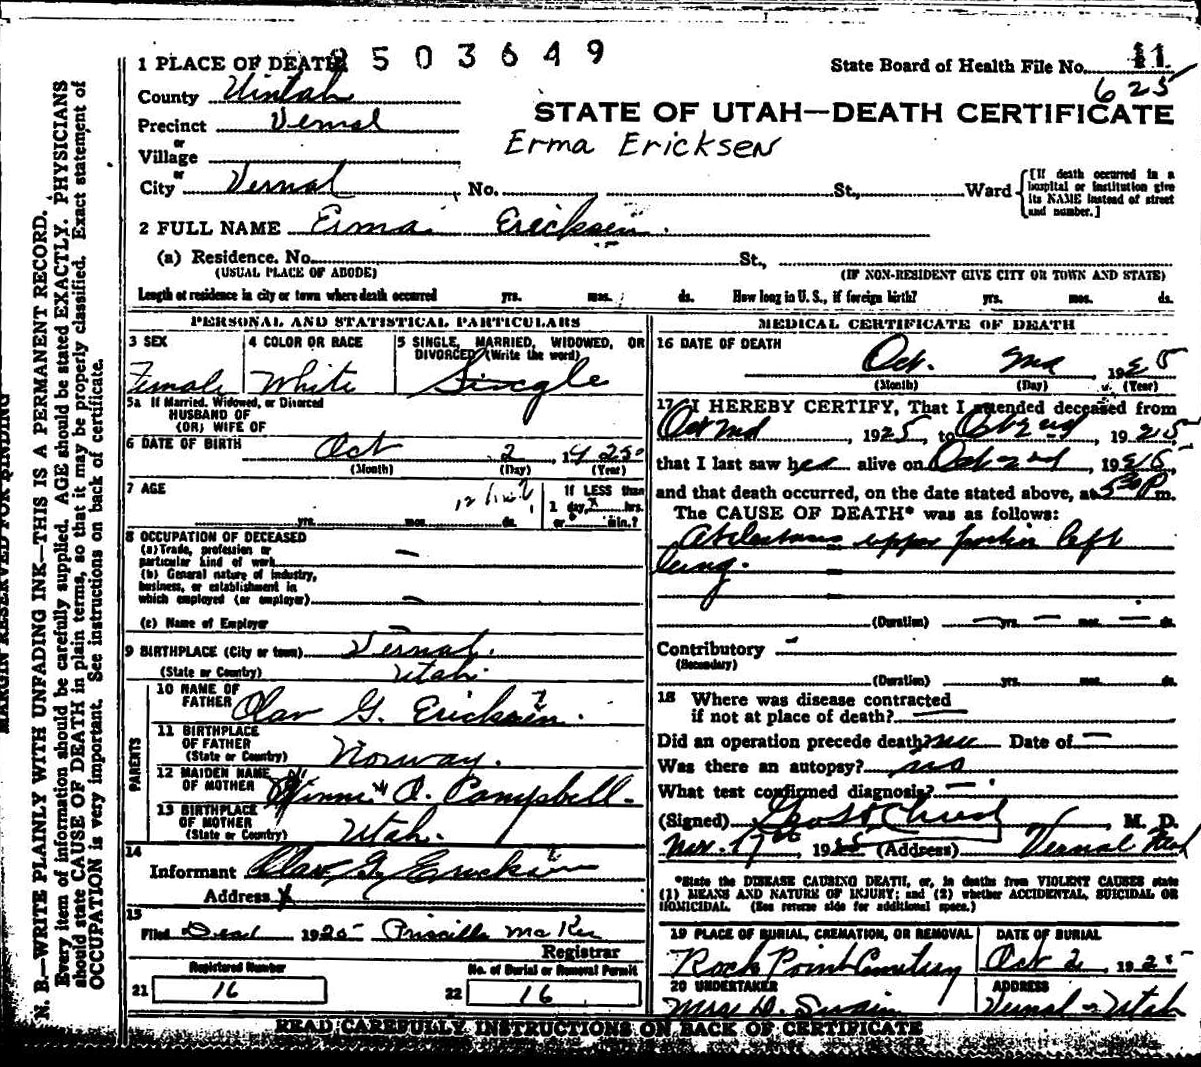 1 PLACE OF DEATH 2503649
State Board of Health File No. 11
625
County Uintah
STATE OF UTAH—DEATH CERTIFICATE
Precinct Vernal
Erma Ericksen
or
Village
or
City Vernal, No. St., Ward
[If death occurred in a hospital or institution give its NAME instead of street and number.]
2 FULL NAME Erma Ericksen.
(a) Residence. No. St.,
(USUAL PLACE OF ABODE) (IF NON-RESIDENT GIVE CITY OR TOWN AND STATE)
Length of residence in city or town where death occurred yrs. mos. ds. How long in U. S., if foreign birth? yrs. mos. ds.
PERSONAL AND STATISTICAL PARTICULARS
3 SEX 4 COLOR OR RACE 5 SINGLE, MARRIED, WIDOWED, OR
DIVORCED (Write the word)
Female White Single
5a If Married, Widowed, or Divorced
HUSBAND OF
(OR) WIFE OF
6 DATE OF BIRTH Oct 2 1925
(Month) (Day) (Year)
7 AGE 12 If LESS than
1 day, hrs.
yrs. mos. ds. or min.?
8 OCCUPATION OF DECEASED
(a) Trade, profession or
particular kind of work —
(b) General nature of industry,
business, or establishment in
which employed (or employer) —
(c) Name of Employer
9 BIRTHPLACE (City or town) Vernal.
(State or Country) Utah.
PARENTS
10 NAME OF
FATHER Olav G. Ericksen.
11 BIRTHPLACE
OF FATHER
(State or Country) Norway.
12 MAIDEN NAME
OF MOTHER A. Campbell.
13 BIRTHPLACE
OF MOTHER
(State or Country) Utah.
14
Informant Olav G. Ericksen
Address
15
Filed 1925 Priscilla McKee
Registrar
Registered Number No. of Burial or Removal Permit
21 16 22 16
MEDICAL CERTIFICATE OF DEATH
16 DATE OF DEATH Oct. 2nd 1925
(Month) (Day) (Year)
17 I HEREBY CERTIFY, That I attended deceased from
Oct 2nd, 1925, to Oct 2nd, 1925
that I last saw her alive on Oct 2nd, 1925
and that death occurred, on the date stated above, at 5 30 P m.
The CAUSE OF DEATH* was as follows:
Atelectasis upper portion left
lung.
(Duration) — yrs. — mos. — ds.
Contributory —
(Secondary)
(Duration) yrs. mos. ds.
18 Where was disease contracted
if not at place of death? —
Did an operation precede death? no Date of —
Was there an autopsy? no
What test confirmed diagnosis? —
(Signed) M. D.
Nov. 17th, 1925 (Address) Vernal Utah
*State the DISEASE CAUSING DEATH, or, in deaths from VIOLENT CAUSES state
(1) MEANS AND NATURE OF INJURY; and (2) whether ACCIDENTAL, SUICIDAL OR
HOMICIDAL. (See reverse side for additional space.)
19 PLACE OF BURIAL, CREMATION, OR REMOVAL DATE OF BURIAL
Rock Point Cemetery Oct 2, 1925
20 UNDERTAKER ADDRESS
Mrs D. Swain Vernal - Utah
READ CAREFULLY INSTRUCTIONS ON BACK OF CERTIFICATE
MARGIN RESERVED FOR BINDING
N. B.—WRITE PLAINLY WITH UNFADING INK—THIS IS A PERMANENT RECORD.
Every item of information should be carefully supplied. AGE should be stated EXACTLY. PHYSICIANS
should state CAUSE OF DEATH in plain terms, so that it may be properly classified. Exact statement of
OCCUPATION is very important. See instructions on back of certificate.